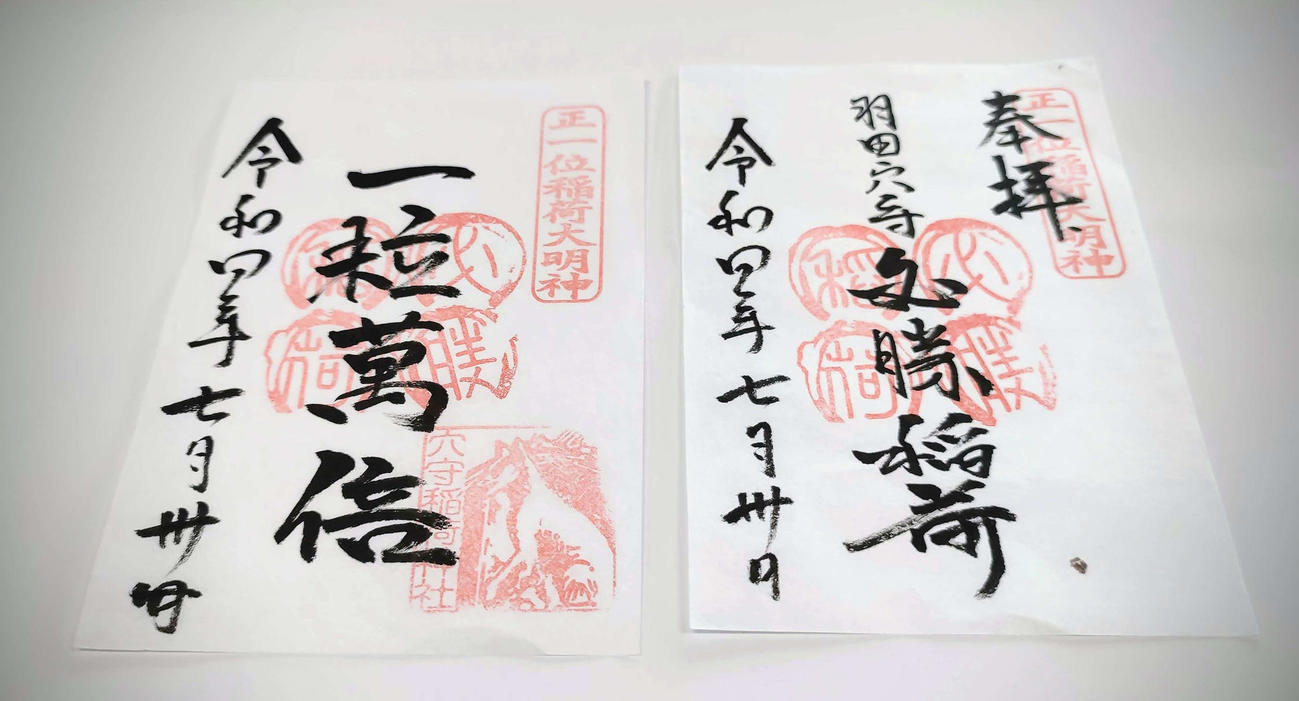 奉拝
正一位稲荷大明神
羽田穴守
必勝稲荷
必勝
稲荷
令和四年七月卅日
正一位稲荷大明神
一粒萬倍
必勝
稲荷
穴守稲荷神社
令和四年七月卅日